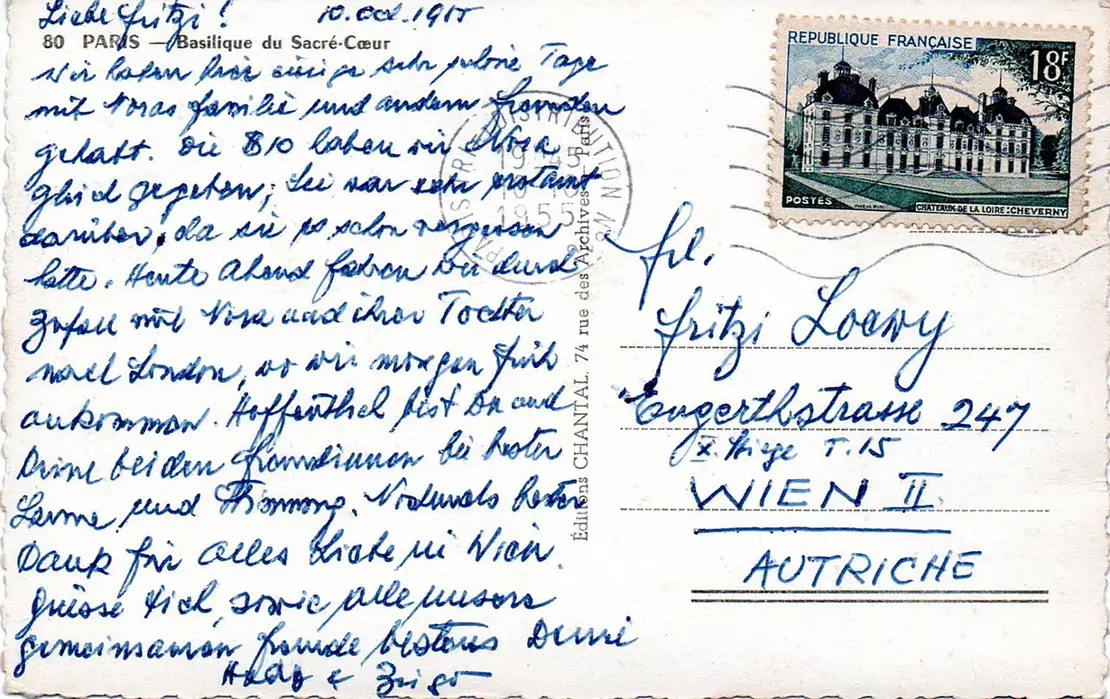 Liebe Fritzi! 10. Oct. 1955
80 PARIS — Basilique du Sacré-Cœur
Wir haben hier einige sehr schöne Tage
mit Noras Familie und andern Freunden
gehabt. Die $10 haben wir Nora
gleich gegeben; Sie war sehr erstaunt
darüber, da sie es schon vergessen
hatte. Heute Abend fahren wir durch
Zufall mit Nora und ihrer Tochter
nach London, wo wir morgen früh
ankommen. Hoffentlich bist Du und
Deine beiden Freundinnen bei bester
Laune und Stimmung. Nochmals besten
Dank für alles Liebe in Wien.
Grüsse Dich, sowie alle unsere
gemeinsamen Freunde bestens Deine
&
Éditions CHANTAL, 74 rue des Archives - Paris
PARIS DISTRIBUTION
1955
REPUBLIQUE FRANÇAISE
18F
POSTES
CHATEAUX DE LA LOIRE: CHEVERNY
Frl.
Fritzi Loewy
Engerthstrasse 247
X. Stiege T. 15
WIEN II.
AUTRICHE